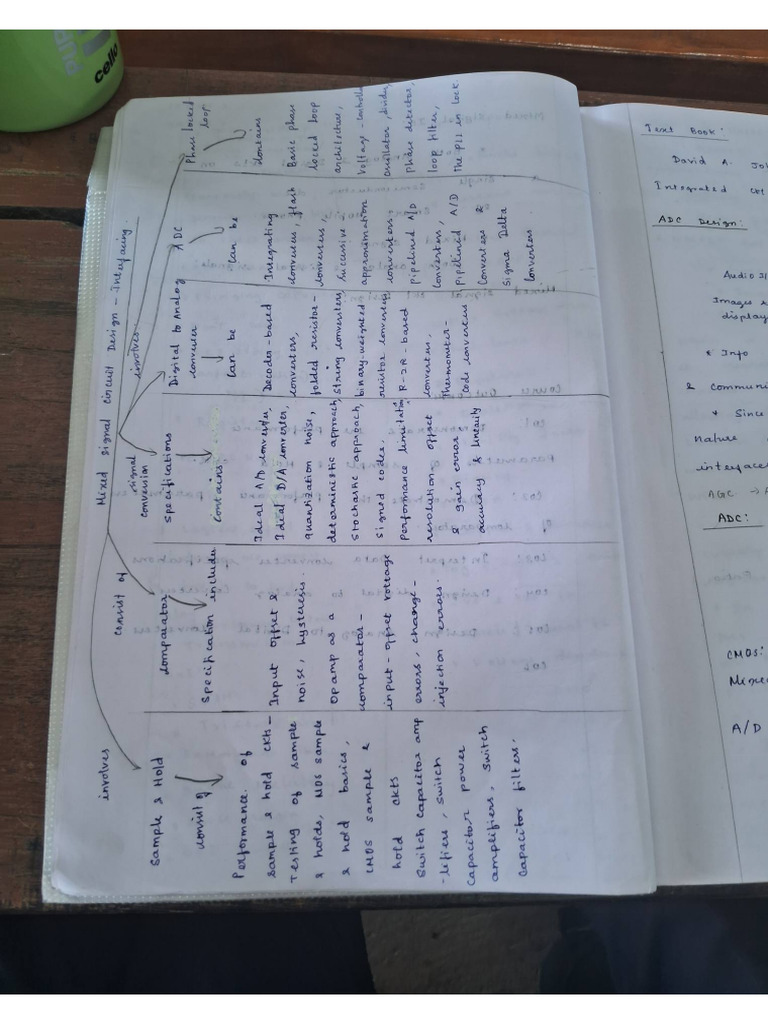 Mixed signal circuit Design - Interfacing.
involves
consist of
signal conversion
involves
Sample & Hold
consist of
Performance of
sample & hold ckts -
Testing of sample
& holds, MOS sample
& hold basics,
CMOS sample &
hold ckts
Switch capacitor amp
-lifiers, Switch
capacitor power
amplifiers, switch
capacitor filters.
comparator
specification includes
Input offset &
noise, hysteresis.
Opamp as a
comparator -
input-offset voltage
errors, charge-
injection errors.
Specifications
contains
Ideal A/D converter,
Ideal D/A converter,
quantization noise,
deterministic approach,
stochastic approach,
signed codes.
Performance limitation
resolution, offset
& gain error,
accuracy & linearity
Digital to Analog
converter
can be
Decoder-based
converters,
folded resistor-
string converters
binary-weighted
resistor converters
R-2R based
converters,
Thermometer-
code converters
ADC
can be
Integrating
converters, flash
converters,
successive
approximation
converters,
pipelined A/D
converters,
pipelined A/D
converters &
sigma Delta
converters.
Phase locked
loop.
contains
Basic phase
locked loop
architecture,
voltage-controlled
oscillator, divider
phase detector,
loop filter,
The PLL in lock.
Text Book:
David A. Joh
Integrated CKt
ADC Design:
Audio
Images &
display
& Info
& Communi
& Since
Nature
interface
AGC →
ADC:
CMOS:
Mixe
A/D
cello